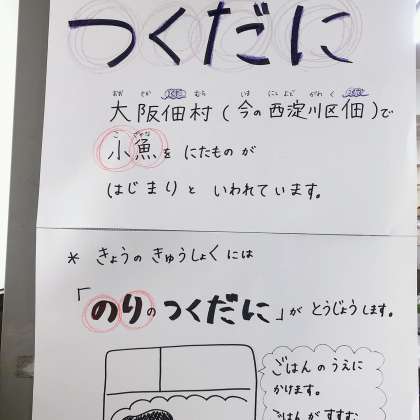 つくだに
大阪佃村(今の西淀川区佃)で
小魚を にたものが
はじまりと いわれています。
* きょうの きゅうしょくには
「のりのつくだに」が とうじょうします。
ごはんの うえに
かけます。
ごはんが すすむ